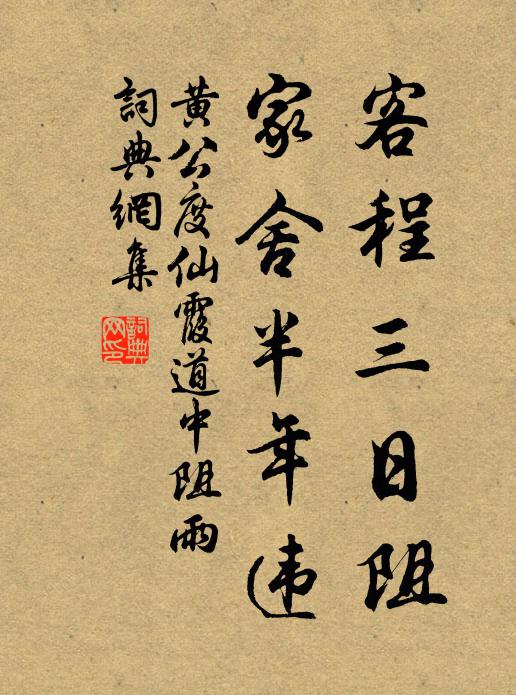 客程三日阻
家舍半年违
黄公度仙霞道中阻雨
詞典網集
詞典网印